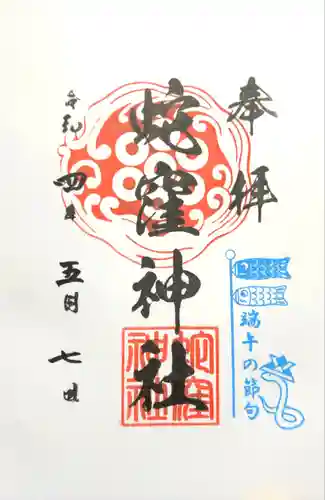 奉拝
蛇窪神社
蛇窪神社
令和四年
五月七日
端午の節句